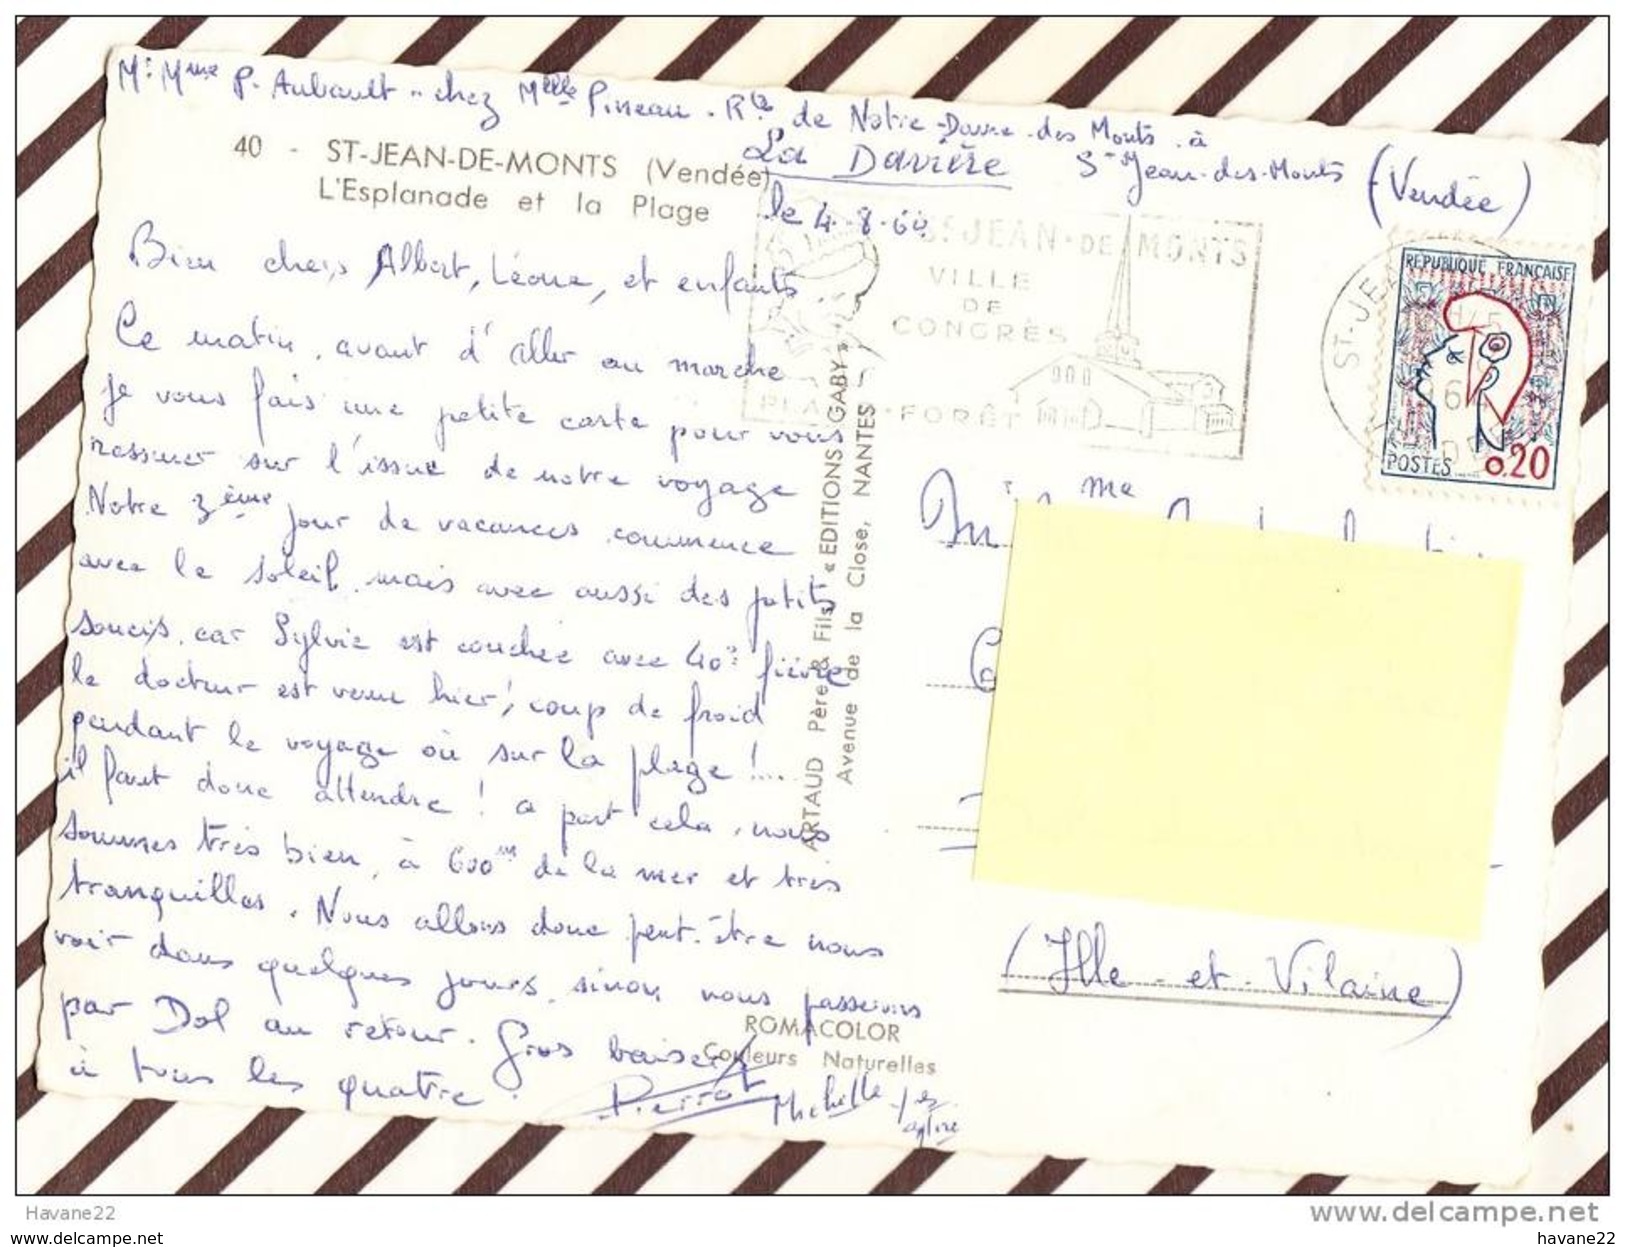 Mr Mme P. Aubault - chez Melle Pineau - Rte de Notre-Dame-des Monts à
La Davière St Jean-des-Monts (Vendée)
40 - ST-JEAN-DE-MONTS (Vendée)
L'Esplanade et la Plage
le 4-8-60
Bien chers Albert, Léone, et enfants.
Ce matin, avant d'aller au marché
je vous fais une petite carte pour vous
rassurer sur l'issue de notre voyage
Notre 3ème jour de vacances commence
avec le soleil, mais avec aussi des petits
soucis, car Sylvie est couchée avec 40° fièvre
le docteur est venu hier, coup de froid
pendant le voyage où sur la plage !...
il faut donc attendre ! à part cela, nous
sommes très bien, à 600m de la mer et très
tranquilles. Nous allons donc peut-être nous
voir dans quelques jours, sinon nous passerons
par Dol au retour. Gros baisers
à tous les quatre.
Pierrot Michelle
ARTAUD Père & Fils « EDITIONS GABY »
Avenue de la Close, NANTES
ROMACOLOR
Couleurs Naturelles
ST JEAN-DE-MONTS
VILLE
DE
CONGRÈS
PLAGE - FORÊT
ST-JEAN
REPUBLIQUE FRANÇAISE
POSTES 0,20
Mr Mme
(Ille-et-Vilaine)
Havane22
www.delcampe.net
havane22
havane22